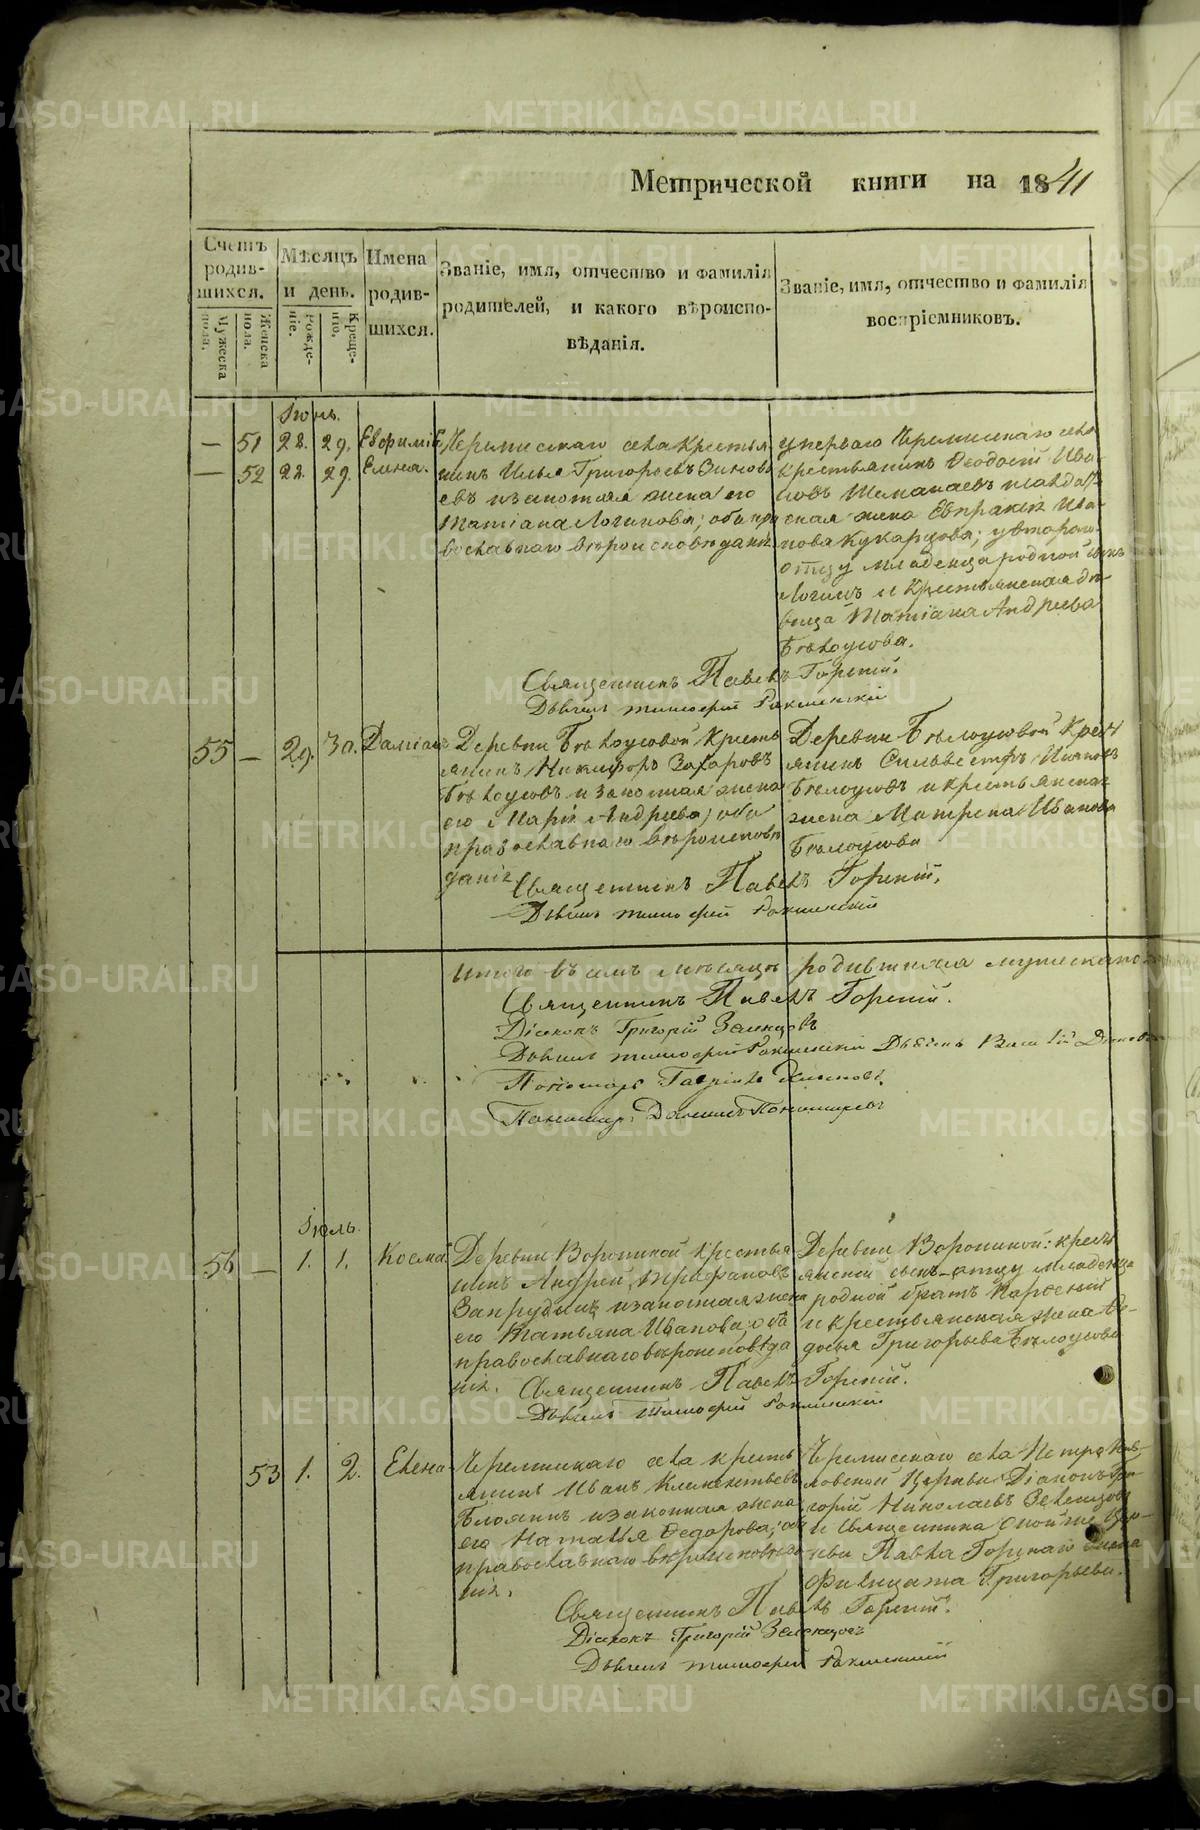 Метрической книги на 1841
Счетъ родив-шихся.
Мужеска пола.
Женска пола.
Мѣсяцъ и день.
Рожде-ніе.
Креще-ніе.
Имена родив-шихся.
Званіе, имя, отчество и фамилія
родителей, и какого вѣроиспо-
вѣданія.
Званіе, имя, отчество и фамилія
воспріемниковъ.
Іюнь.
— 51 28. 29. Евфимія
— 52 28. 29. Елена.
Черемисскаго села Крестья
нинъ Илья Григорьевъ Зиновь
евъ и законная жена его
Татіана Логинова; оба пра
вославнаго вѣроисповѣданія.
у перваго Черемисскаго села
крестьянинъ Ѳеодосій Ива-
новъ
ская жена Евпраксія Ива-
нова Кукарцова; у втораго
отцу младенца родной сынъ
Логинъ и Крестьянская дѣ-
вица Татіана Андреева
Бѣлоусова.
Священникъ Павелъ Горскій.
Дьячекъ Тимофей
55 — 29. 30. Даміанъ
Деревни Бѣлоусовой Кресть
янинъ Никифоръ Захаровъ
Бѣлоусовъ и законная жена
его Марія Андреева; оба
православнаго вѣроисповѣ
данія
Деревни Бѣлоусовой Крест
янинъ Сильвестръ Ивановъ
Бѣлоусовъ и крестьянская
жена Матрена Иванова
Бѣлоусова
Священникъ Павелъ Горскій.
Дьячекъ Тимофей
Итого въ семъ мѣсяцѣ родившихся мужеска по
Священникъ Павелъ Горскій.
Діаконъ Григорій Зеленцовъ
Дьячекъ Тимофей Дьячекъ
Пономарь Гавріилъ
Пономарь Пономаревъ
Іюль.
56 — 1. 1. Косма
Деревни Ворониной Крестья
нинъ Андрей
Запрудинъ и законная жена
его Татьяна Иванова; оба
православнаго вѣроисповѣда
нія.
Деревни Ворониной: крест
янскій сынъ отцу младенца
родной братъ
и крестьянская жена Ѳе-
досья Григорьева Бѣлоусова
Священникъ Павелъ Горскій.
Дьячекъ Тимофей
53 1. 2. Елена
Черемискаго села кресть
янинъ Иванъ Климентьевъ
и законная жена
его Наталья Ѳедорова; оба
православнаго вѣроисповѣда
нія.
Черемисскаго села Петропав-
ловской Церкви Діаконъ Гри-
горій Николаевъ Зеленцовъ
и Священника оной же Цер-
кви Павла Горскаго жена
Филицата Григорьева.
Священникъ Павелъ Горскій.
Діаконъ Григорій Зеленцовъ
Дьячекъ Тимофей
METRIKI.GASO-URAL.RU